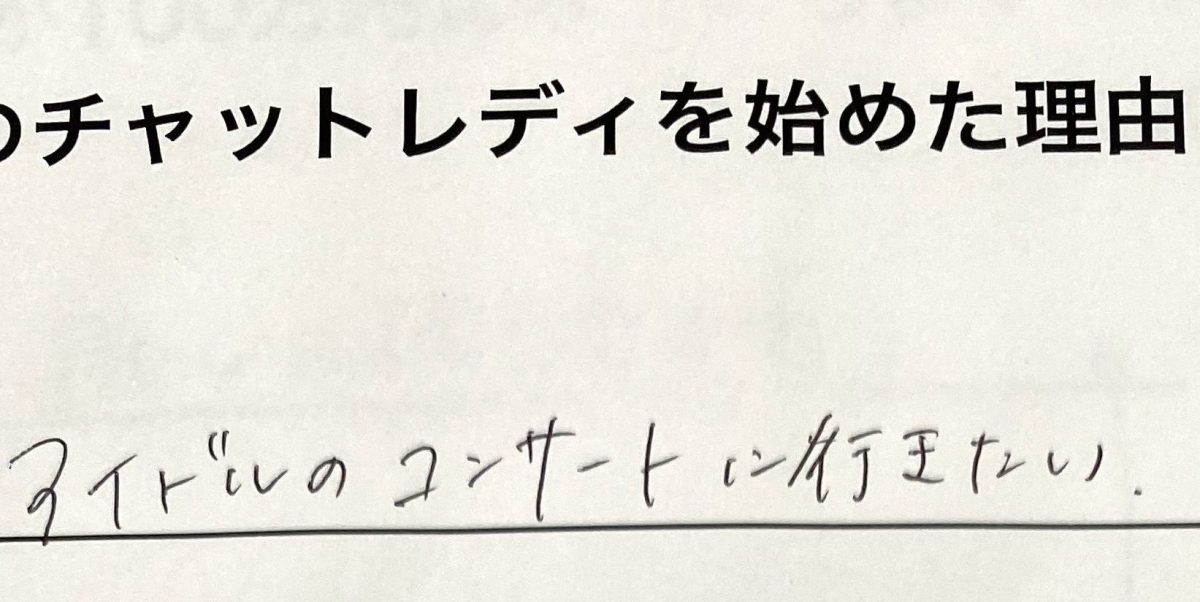 のチャットレディを始めた理由
アイドルのコンサートに行きたい.